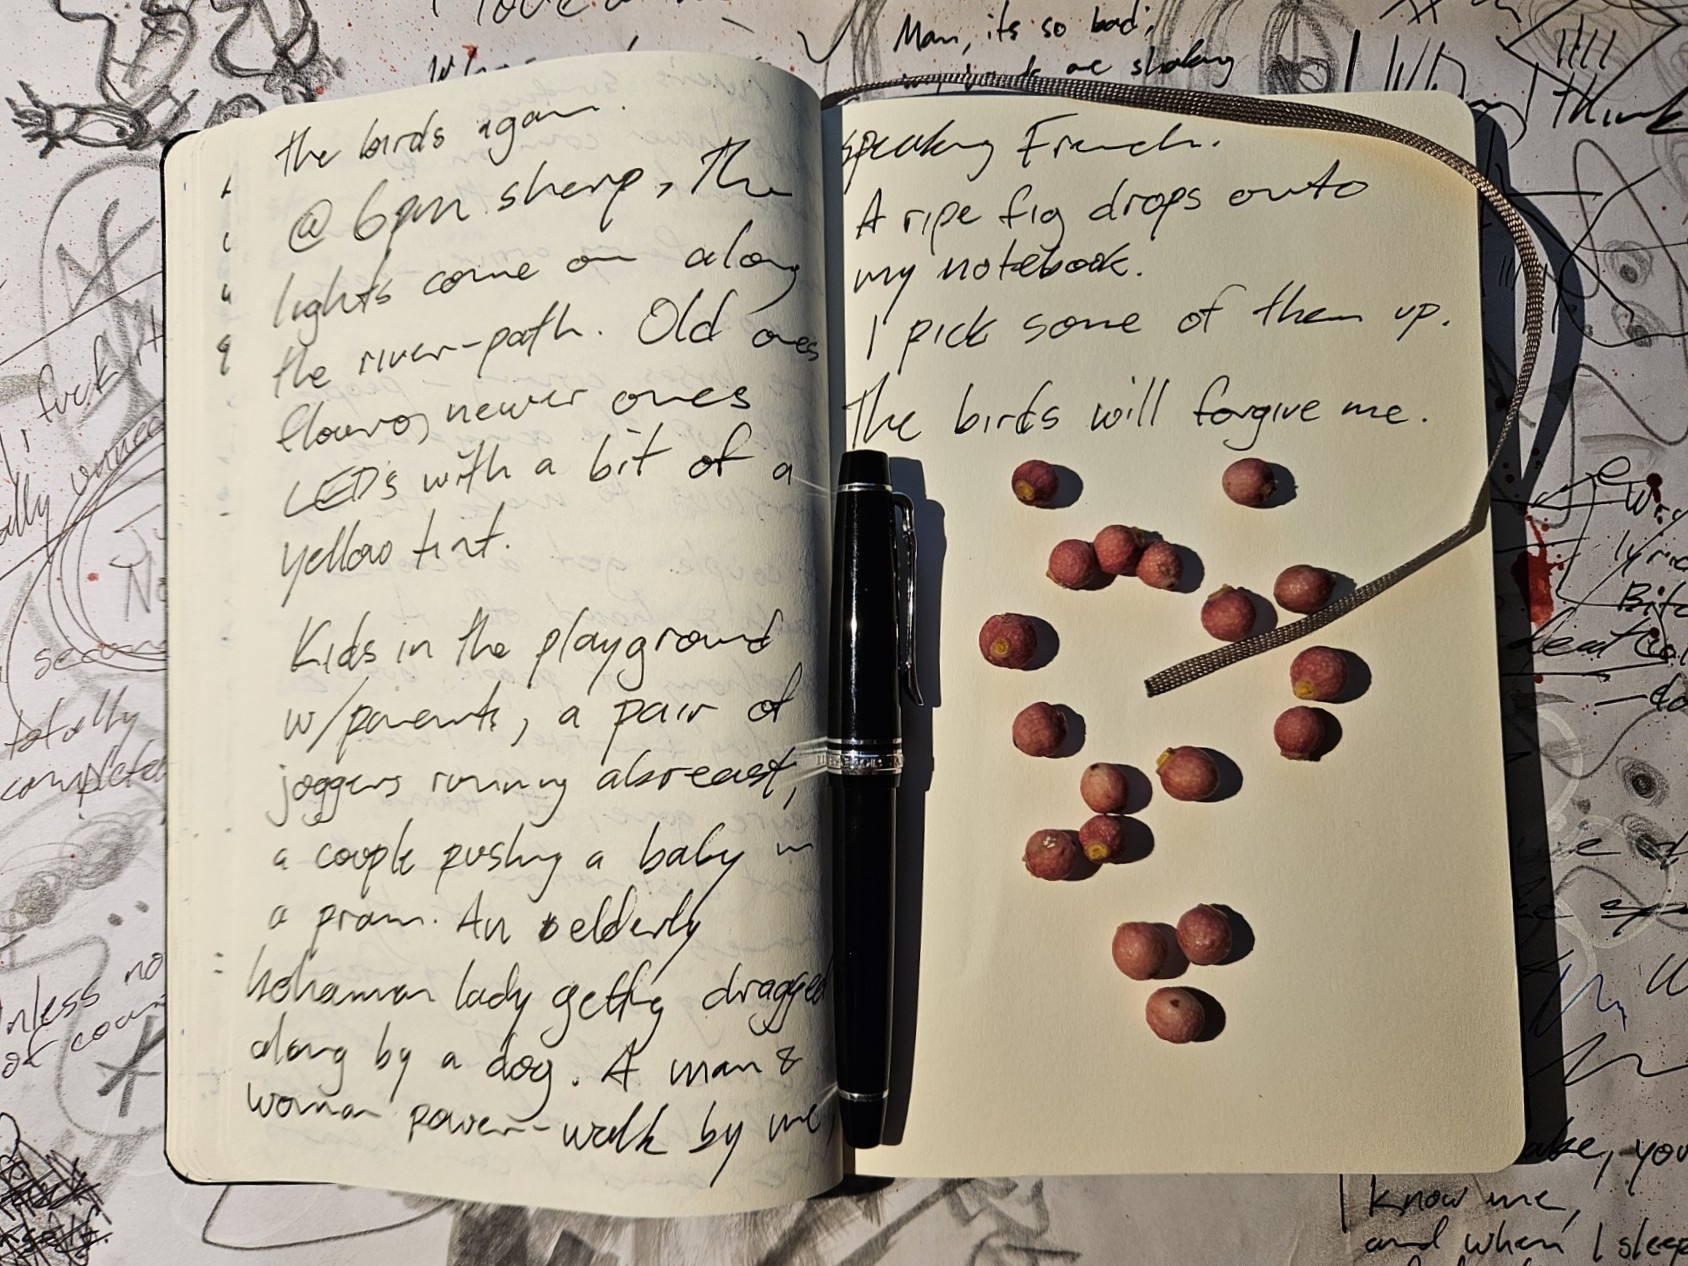 the birds again.
@ 6pm sharp, the
lights come on along
the river-path. Old ones
flouro, newer ones
LEDs with a bit of a
yellow tint.
Kids in the playground
w/parents, a pair of
joggers running abreast,
a couple pushing a baby in
a pram. An elderly
bohemian lady getting dragged
along by a dog. A man &
woman power-walk by me,
speaking French.
A ripe fig drops onto
my notebook.
I pick some of them up.
The birds will forgive me.
Man, its so bad,
are shaking
Why
I think
fuck it
totally
completely
unless no
of course
I know me,
and when I sleep